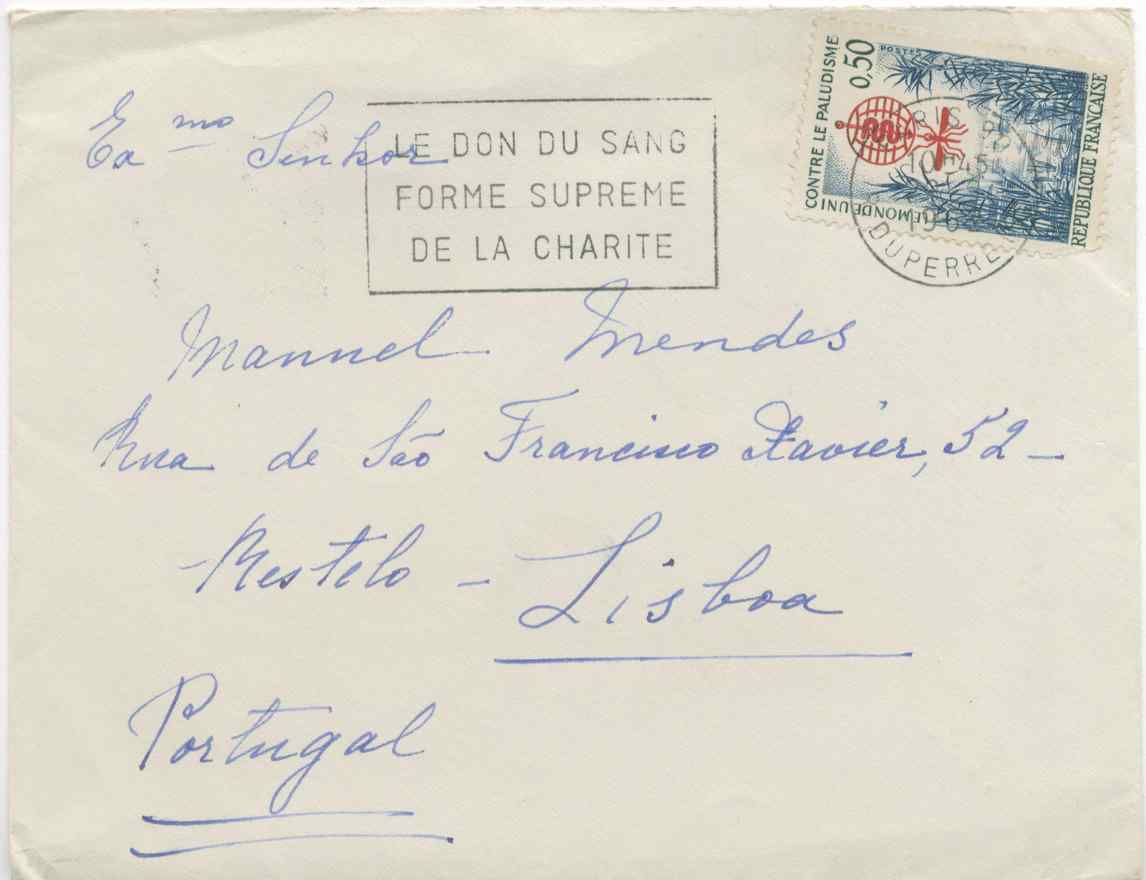 Exmo Senhor
LE DON DU SANG
FORME SUPREME
DE LA CHARITE
CONTRE LE PALUDISME
0,50
POSTES
LE MONDE UNI
REPUBLIQUE FRANÇAISE
PARIS
10H45
DUPERRE
Manuel Mendes
Rua de São Francisco Xavier, 52 -
- Restelo - Lisboa
Portugal